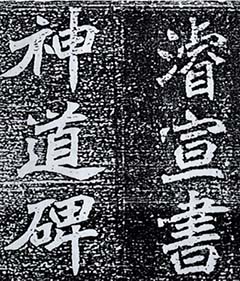 濬宣書
神道碑